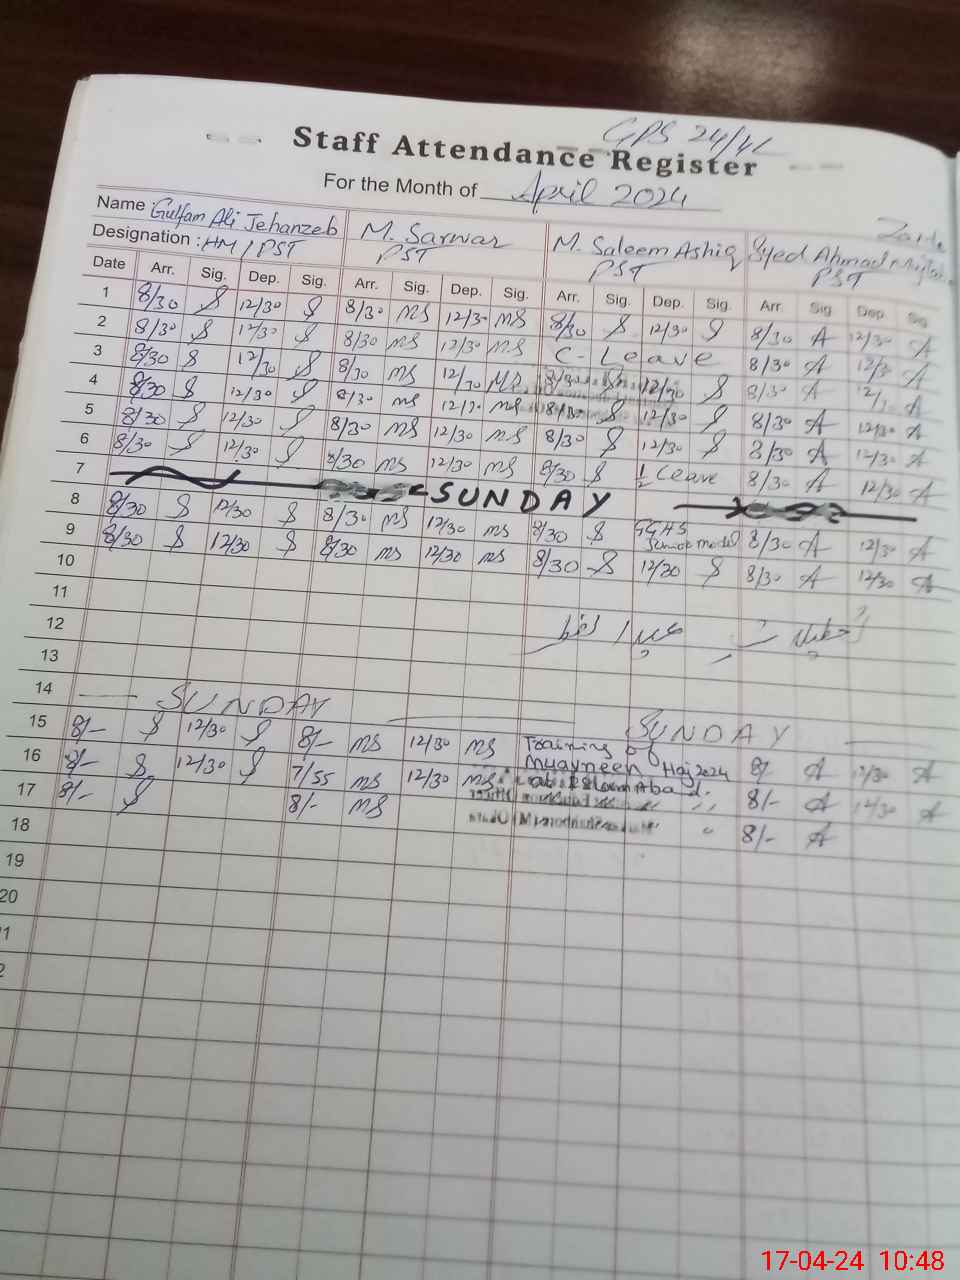 GPS 24/4L
Staff Attendance Register
For the Month of April 2024
Name Gulfam Ali Jehanzeb M. Sarwar M. Saleem Ashiq Syed Ahmad
Designation : HM / PST PST PST PST
Date Arr. Sig. Dep. Sig. Arr. Sig. Dep. Sig. Arr. Sig. Dep. Sig. Arr. Sig Dep. Sig
1 8/30 S 12/30 S 8/30 MS 12/30 MS 8/30 S 12/30 S 8/30 A 12/30 A
2 8/30 S 12/30 S 8/30 MS 12/30 MS C - Leave 8/30 A 12/30 A
3 8/30 S 12/30 S 8/30 MS 12/30 MS 8/30 S 12/30 S 8/30 A 12/30 A
4 8/30 S 12/30 S 8/30 MS 12/30 MS 8/30 S 12/30 S 8/30 A 12/30 A
5 8/30 S 12/30 S 8/30 MS 12/30 MS 8/30 S 12/30 S 8/30 A 12/30 A
6 8/30 S 12/30 S 8/30 MS 12/30 MS 8/30 S 1/2 Leave 8/30 A 12/30 A
7 SUNDAY
8 8/30 S 12/30 S 8/30 MS 12/30 MS 8/30 S GGHS Junior model 8/30 A 12/30 A
9 8/30 S 12/30 S 8/30 MS 12/30 MS 8/30 S 12/30 S 8/30 A 12/30 A
10
11
12
13
14 SUNDAY SUNDAY
15 8/- S 12/30 S 8/- MS 12/30 MS Training of 8/- A 12/30 A
16 8/- S 12/30 S 7/55 MS 12/30 MS Muavneen Haj 2024 8/- A 12/30 A
17 8/- S 8/- MS at Islamabad. 8/- A
18
19
20
17-04-24 10:48